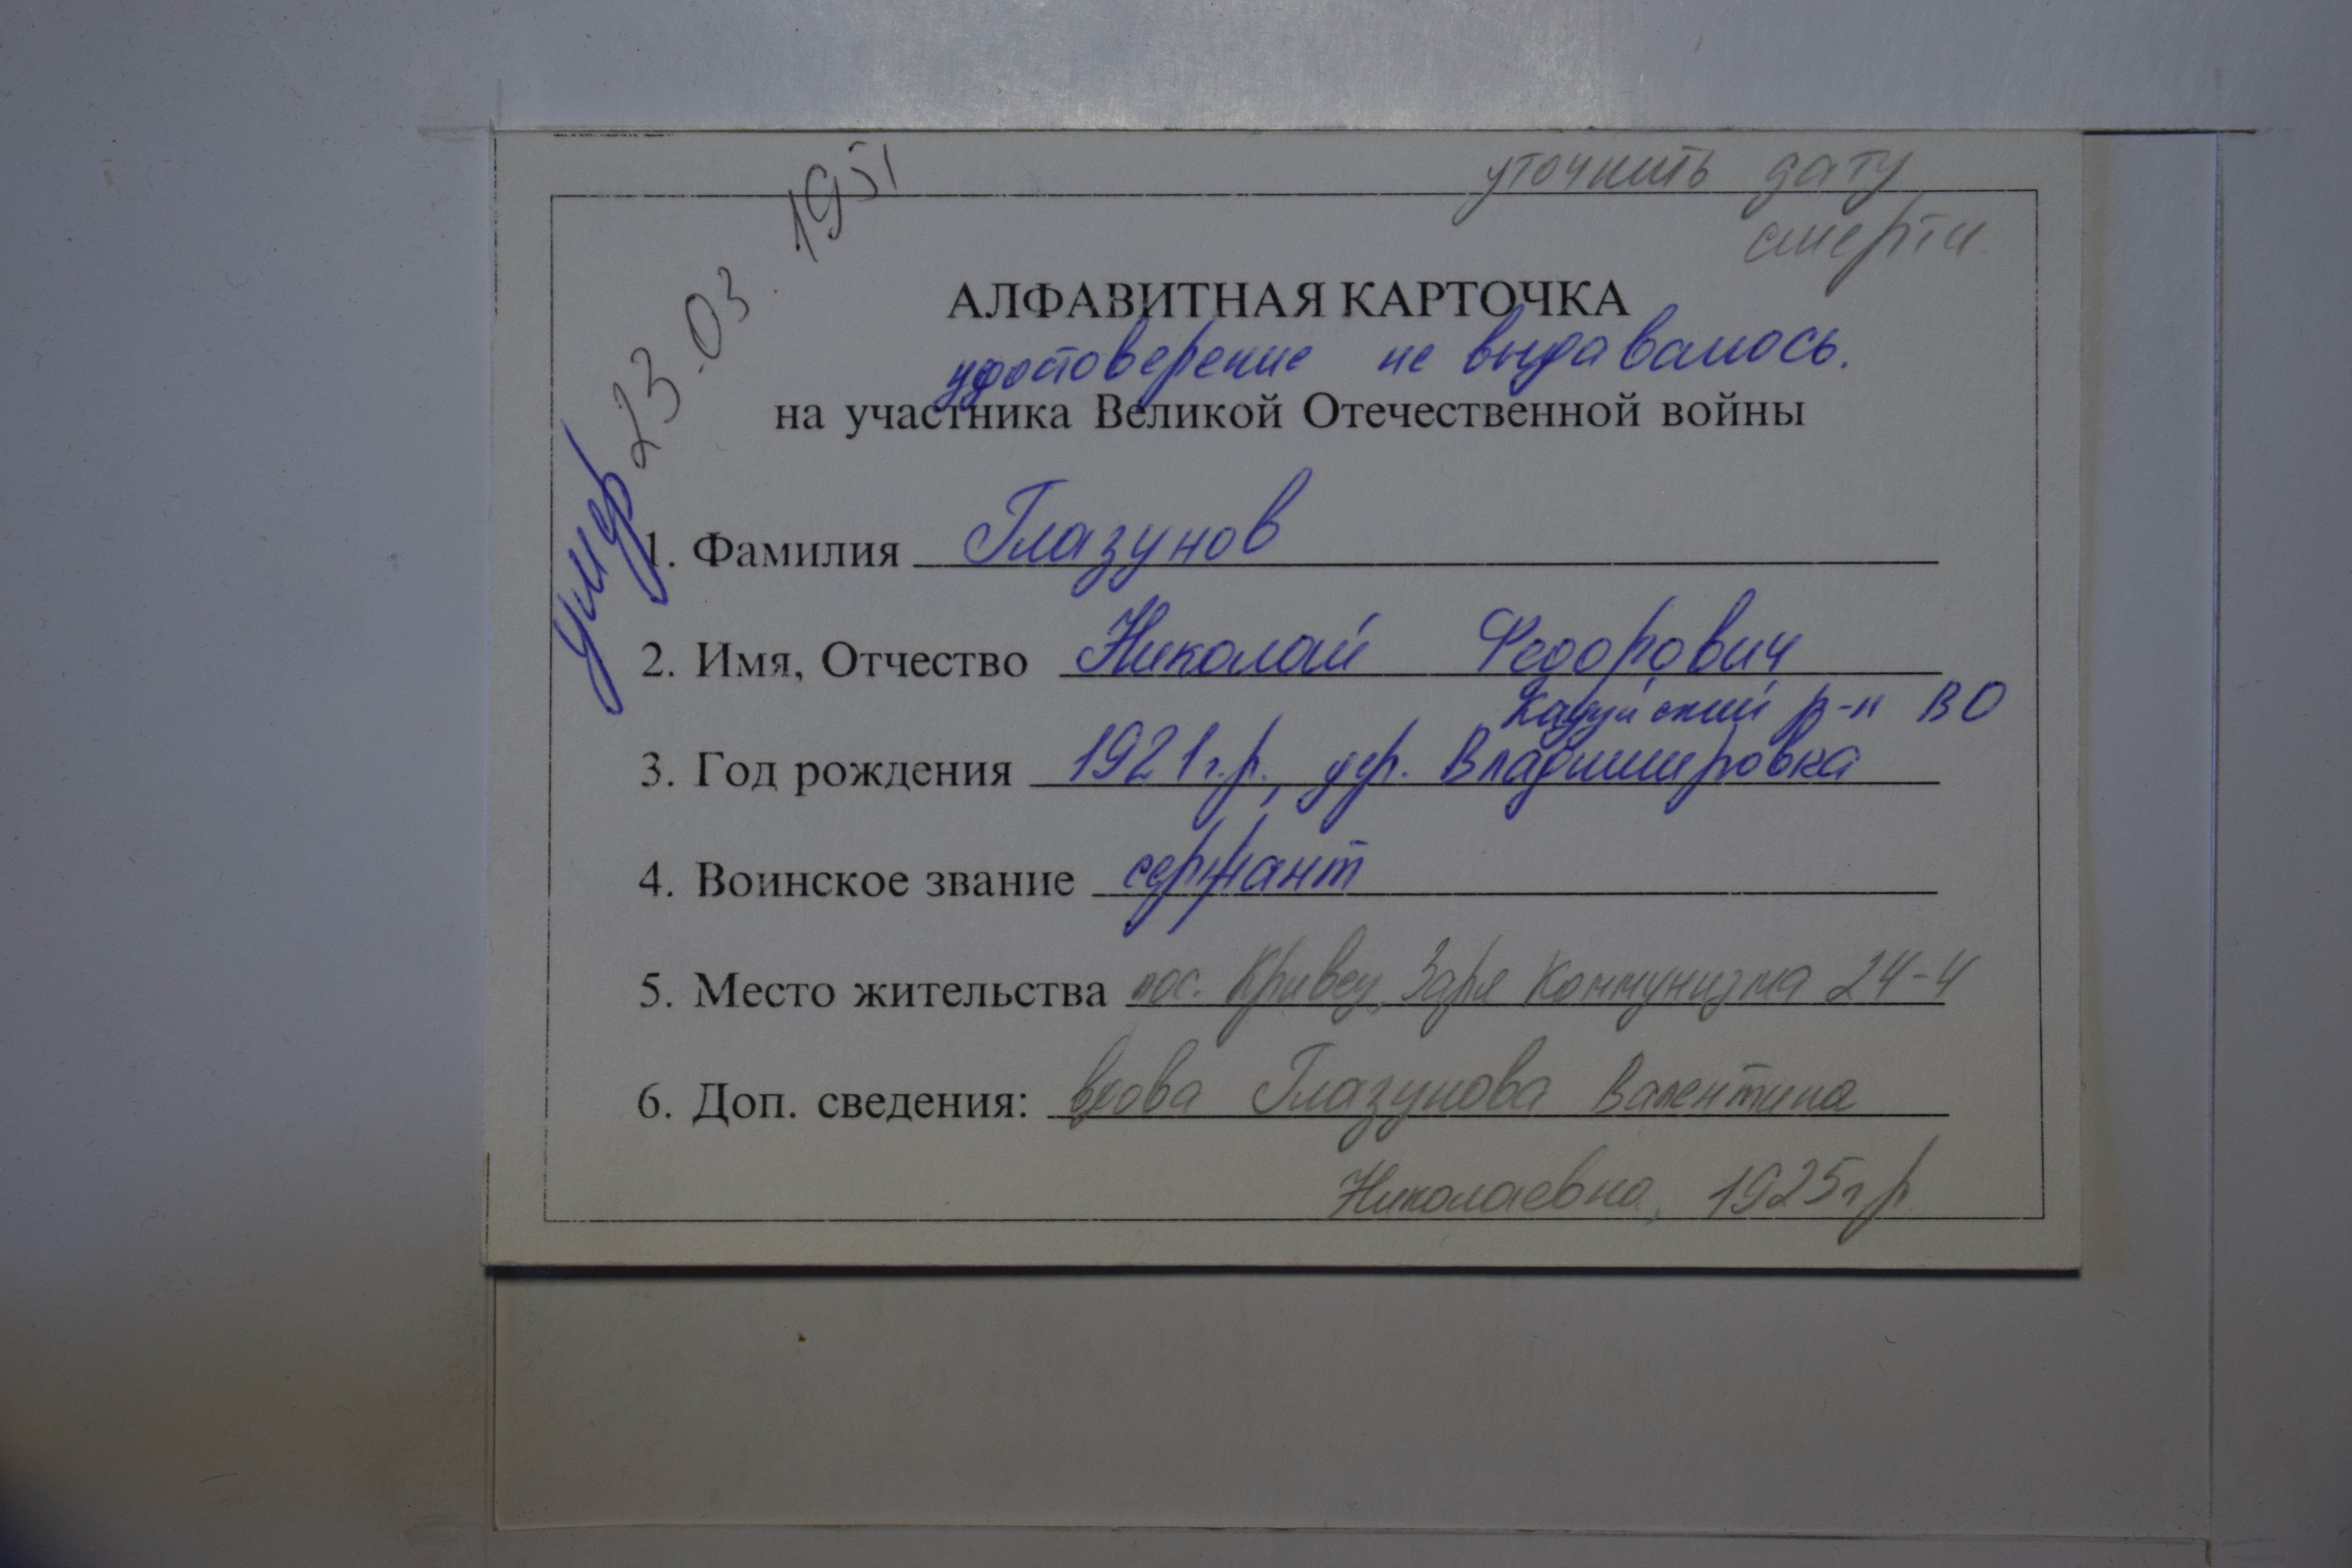 уточнить дату
смерти.
умер 23.03.1951
АЛФАВИТНАЯ КАРТОЧКА
удостоверение не выдавалось.
на участника Великой Отечественной войны
1. Фамилия Глазунов
2. Имя, Отчество Николай Федорович
Кадуйский р-н ВО
3. Год рождения 1921 г.р., дер. Владимировка
4. Воинское звание сержант
5. Место жительства пос. Кривец, Заря Коммунизма 24-4
6. Доп. сведения: вдова Глазунова Валентина
Николаевна, 1925 г.р.